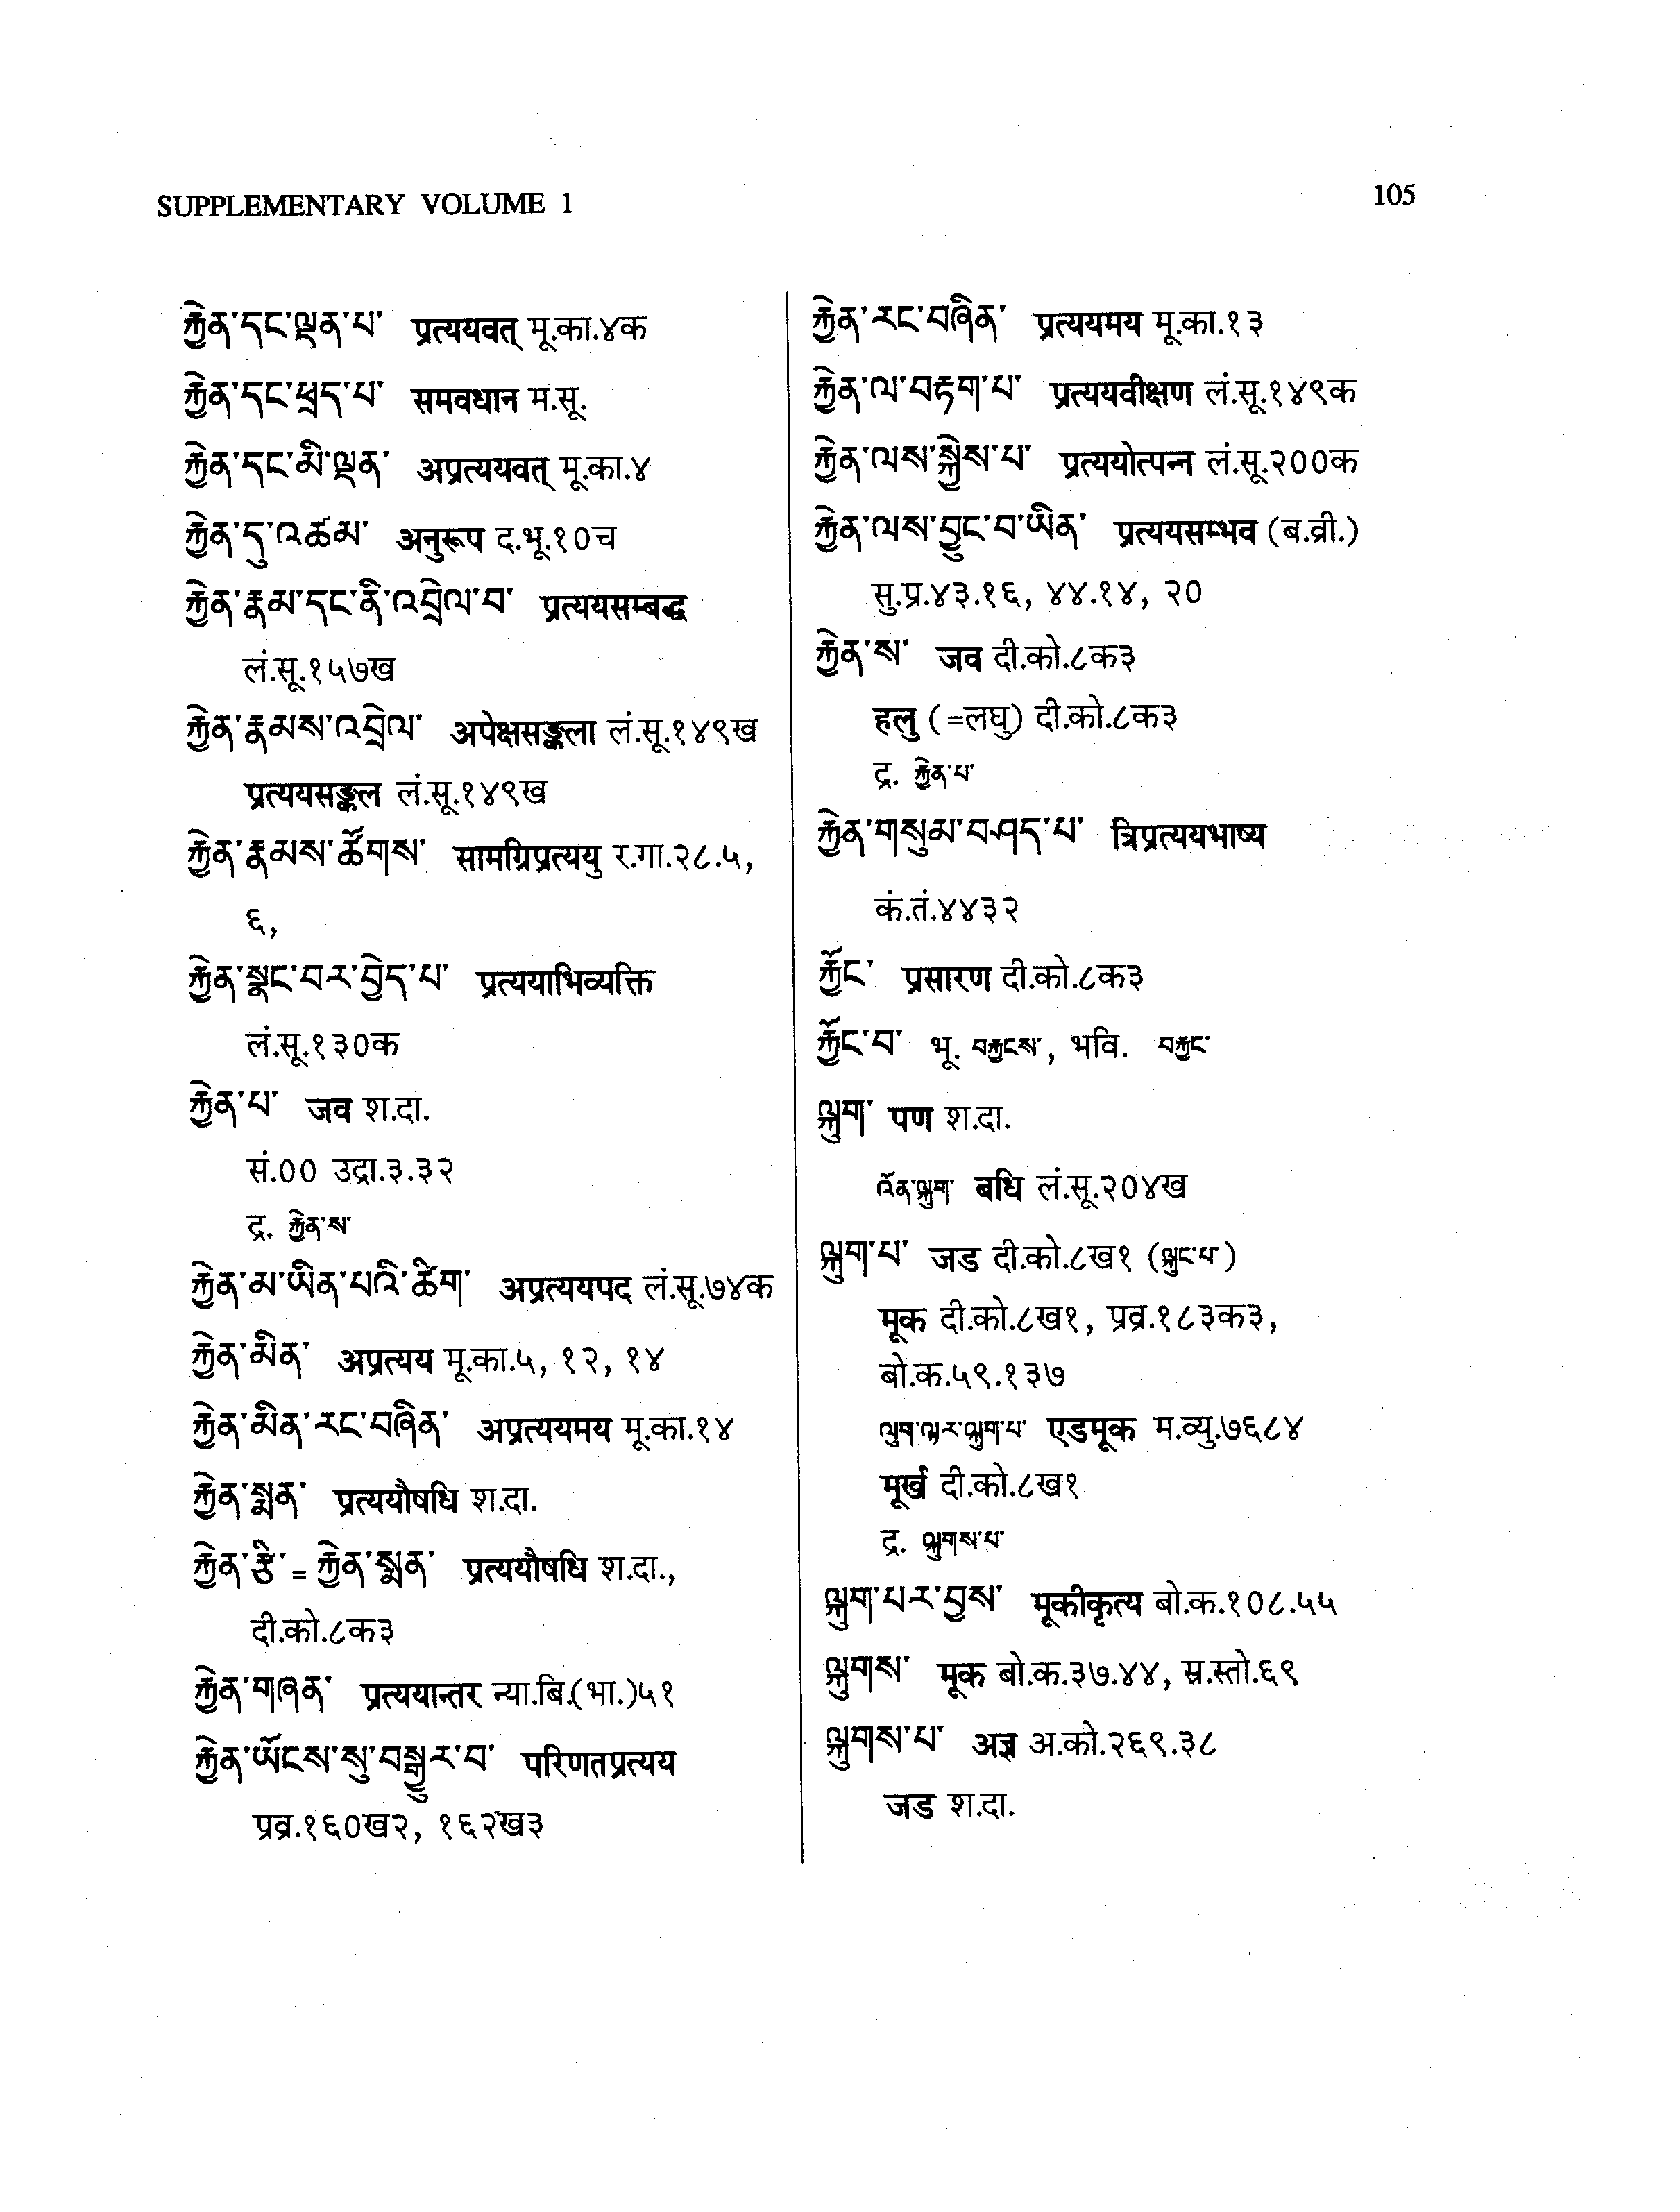 SUPPLEMENTARY VOLUME 1
105
རྐྱེན་དང་ལྡན་པ་ प्रत्ययवत् मू.का.४क
རྐྱེན་དང་ཕྲད་པ་ समवधान म.सू.
རྐྱེན་དང་མི་ལྡན་ अप्रत्ययवत् मू.का.४
རྐྱེན་དུ་འཚམ་ अनुरूप द.भू.१०च
རྐྱེན་རྣམ་དང་ནི་འབྲེལ་བ་ प्रत्ययसम्बद्ध
लं.सू.१५७ख
རྐྱེན་རྣམས་འབྲེལ་ अपेक्षसङ्कला लं.सू.१४९ख
प्रत्ययसङ्कल लं.सू.१४९ख
རྐྱེན་རྣམས་ཚོགས་ सामग्रिप्रत्ययु र.गा.२८.५,
६,
རྐྱེན་སྣང་བར་བྱེད་པ་ प्रत्ययाभिव्यक्ति
लं.सू.१३०क
རྐྱེན་པ་ जव श.दा.
सं.०० उद्रा.३.३२
द्र. རྐྱེན་ས་
རྐྱེན་མ་ཡིན་པའི་ཚིག་ अप्रत्ययपद लं.सू.७४क
རྐྱེན་མིན་ अप्रत्यय मू.का.५, १२, १४
རྐྱེན་མིན་རང་བཞིན་ अप्रत्ययमय मू.का.१४
རྐྱེན་སྨན་ प्रत्ययौषधि श.दा.
རྐྱེན་རྩི་ = རྐྱེན་སྨན་ प्रत्ययौषधि श.दा.,
दी.को.८क३
རྐྱེན་གཞན་ प्रत्ययान्तर न्या.बि.(भा.)५१
རྐྱེན་ཡོངས་སུ་བསྒྱུར་བ་ परिणतप्रत्यय
प्रव्र.१६०ख२, १६२ख३
རྐྱེན་རང་བཞིན་ प्रत्ययमय मू.का.१३
རྐྱེན་ལ་བརྟག་པ་ प्रत्ययवीक्षण लं.सू.१४९क
རྐྱེན་ལས་སྐྱེས་པ་ प्रत्ययोत्पन्न लं.सू.२००क
རྐྱེན་ལས་བྱུང་བ་ཡིན་ प्रत्ययसम्भव (ब.व्री.)
सु.प्र.४३.१६, ४४.१४, २०
རྐྱེན་ས་ जव दी.को.८क३
हलु (=लघु) दी.को.८क३
द्र. རྐྱེན་པ་
རྐྱེན་གསུམ་བཤད་པ་ त्रिप्रत्ययभाष्य
कं.तं.४४३२
རྐྱོང་ प्रसारण दी.को.८क३
རྐྱོང་བ་ भू. བརྐྱངས་, भवि. བརྐྱང་
ལྐུག་ पण श.दा.
འོན་ལྐུག་ बधि लं.सू.२०४ख
ལྐུག་པ་ जड दी.को.८ख१ (ལྐུང་པ་)
मूक दी.को.८ख१, प्रव्र.१८३क३,
बो.क.५९.१३७
ལུག་ལྟར་ལྐུག་པ་ एडमूक म.व्यु.७६८४
मूर्ख दी.को.८ख१
द्र. ལྐུགས་པ་
ལྐུག་པར་བྱས་ मूकीकृत्य बो.क.१०८.५५
ལྐུགས་ मूक बो.क.३७.४४, स्र.स्तो.६९
ལྐུགས་པ་ अज्ञ अ.को.२६९.३८
जड श.दा.